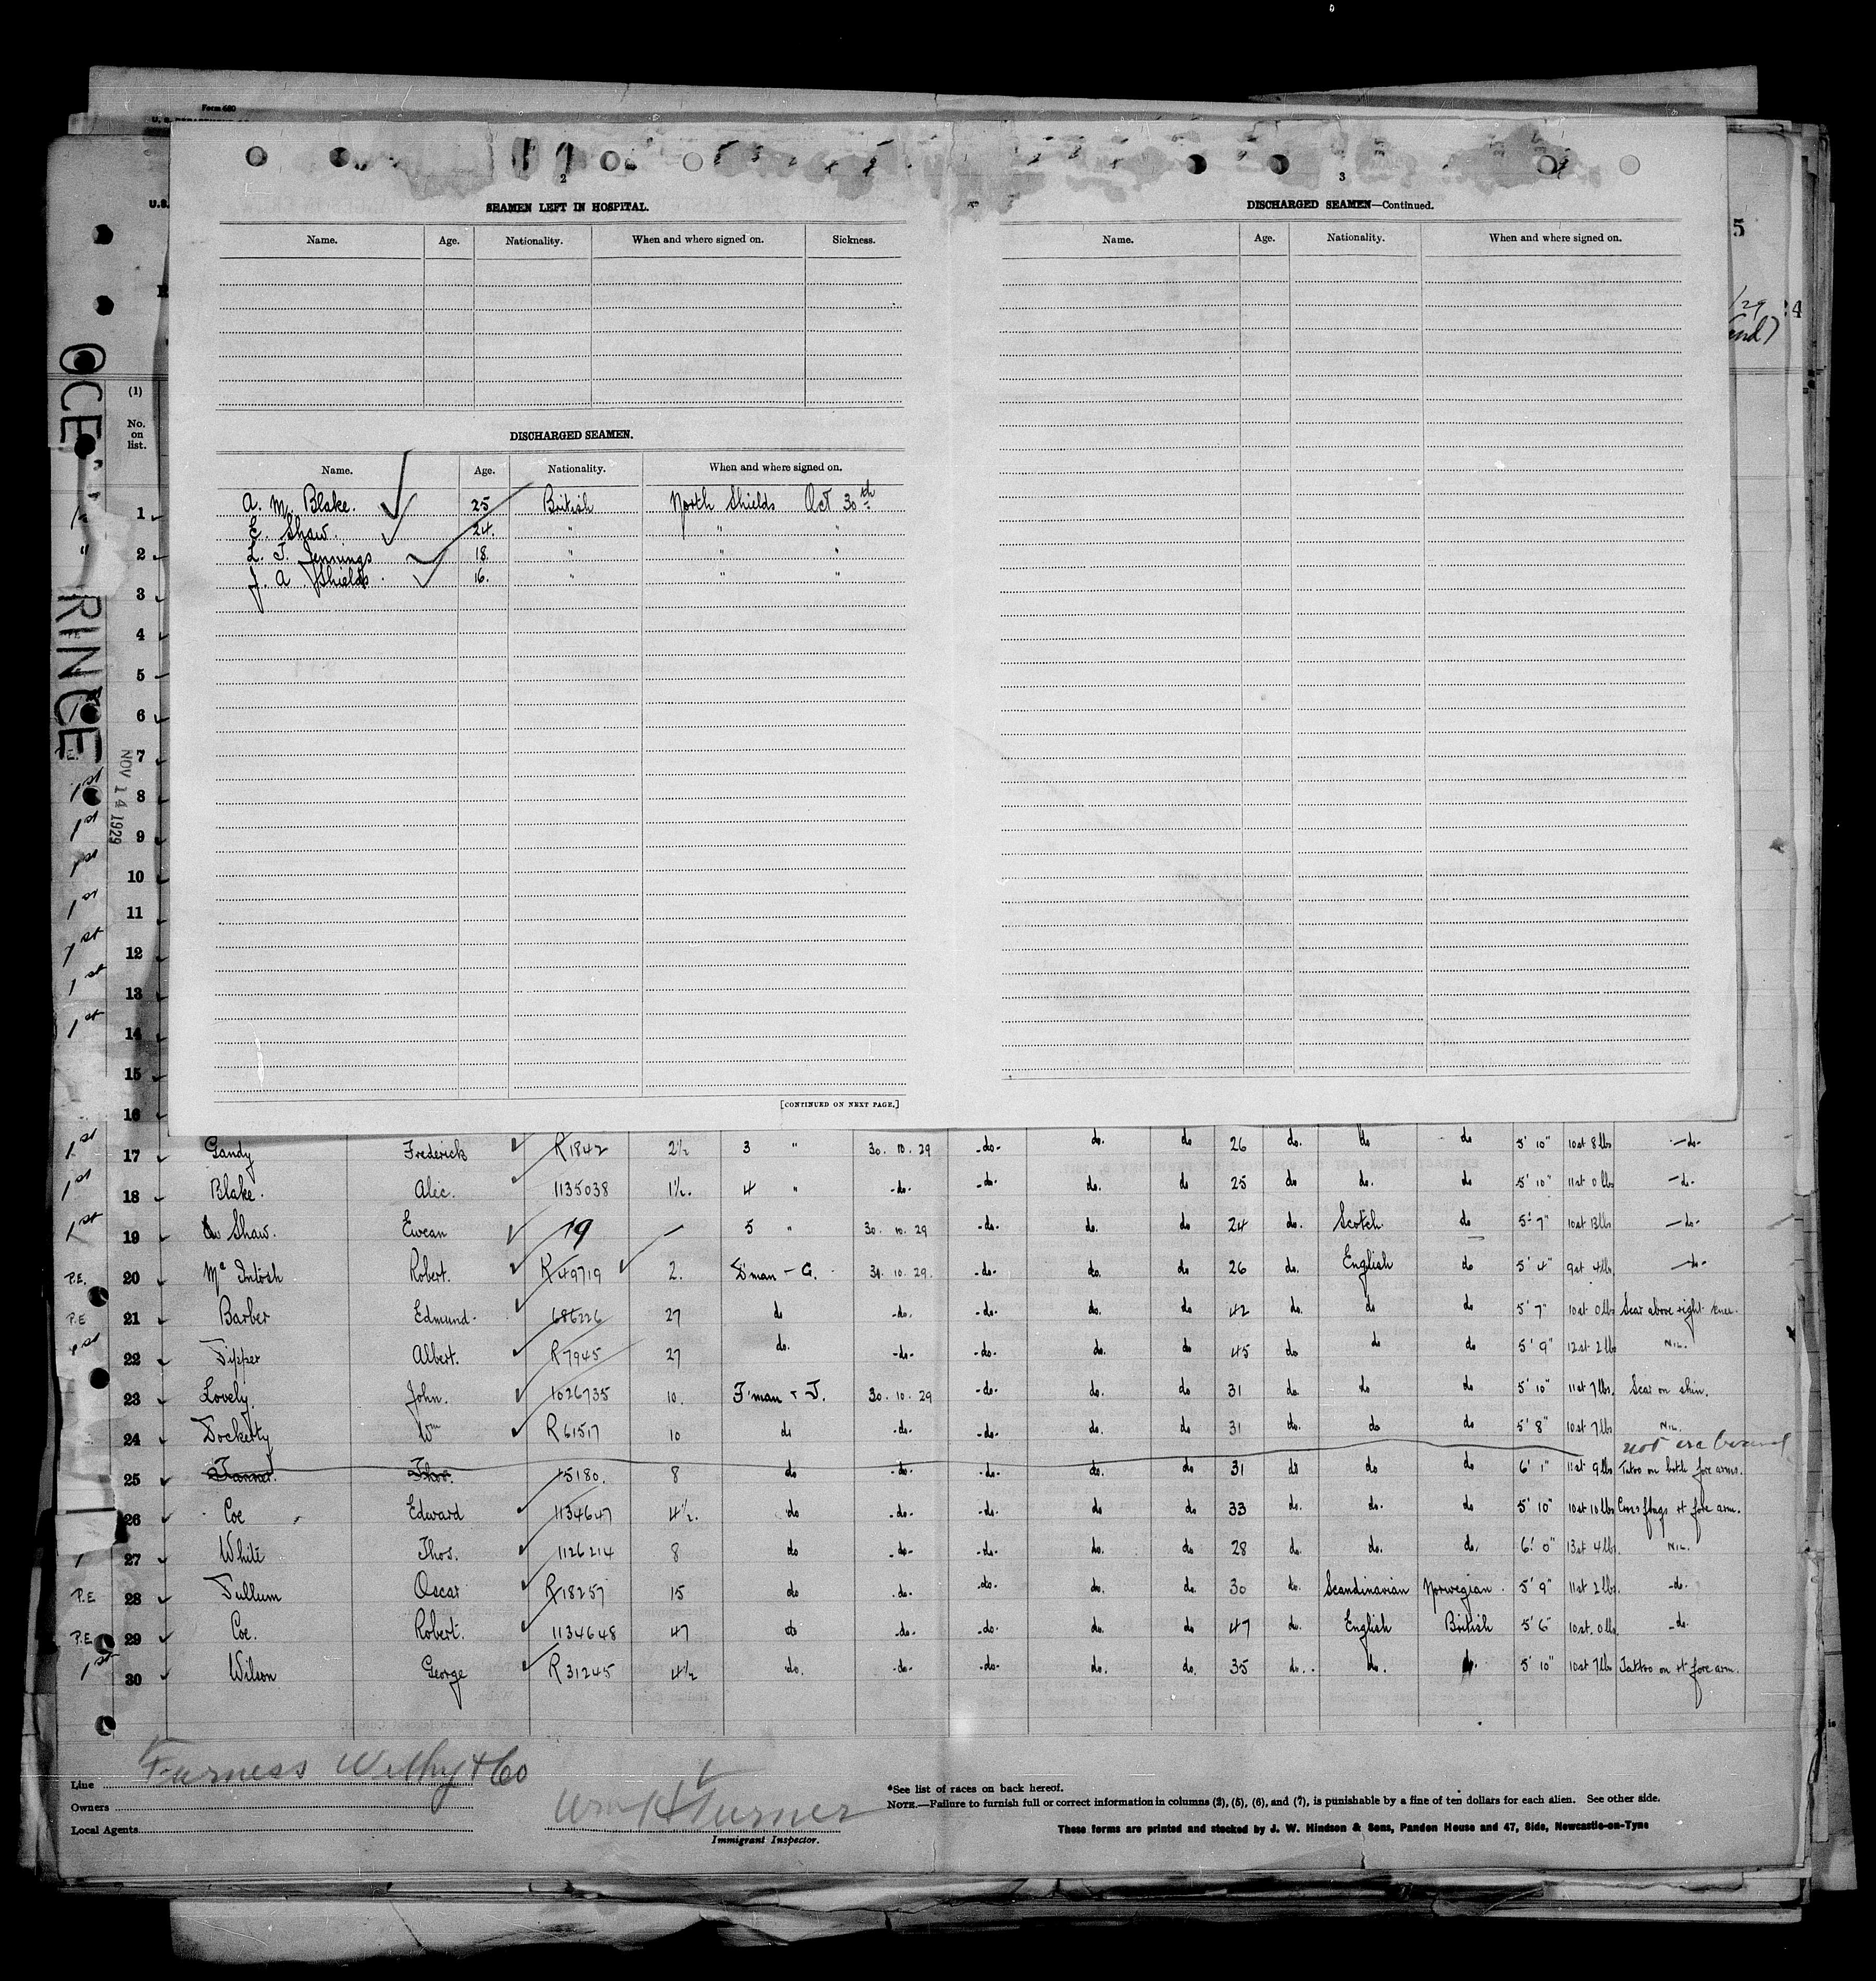 Form 680
U. S. DEPARTMENT
U.S.
5
/29
24
(1)
No.
on
list.
OCE
RINCE
NOV 14 1929
2
SEAMEN LEFT IN HOSPITAL.
Name. Age. Nationality. When and where signed on. Sickness.
DISCHARGED SEAMEN.
Name. Age. Nationality. When and where signed on.
A. M. Blake. 25 British North Shields Oct 30th
E. Shaw. 24. " " "
L. J. Jennings 18. " " "
J. A. Shields. 16. " " "
[CONTINUED ON NEXT PAGE.]
3
DISCHARGED SEAMEN—Continued.
Name. Age. Nationality. When and where signed on.
1
2
3
4
5
6
7
8
9
10
11
12
13
14
15
16
1st 17 Gandy Frederick R1842 2½ 3 " 30. 10. 29 -do- do. do 26 do. do do 5' 10" 10st 8lbs -do-
1st 18 Blake. Alec. 1135038 1½. 4 " -do- -do- do. do 25 do do. do 5' 10" 11st 0lbs -do-
1st 19 Shaw. Ewean 19 — 5 " 30. 10. 29 -do- do. do 24 do. Scotch do 5' 7" 10st 13lbs -do-
P.E. 20 Mc Intosh Robert. R49719 2. D'man - G. 30. 10. 29. -do- do. do 26 do. English do 5' 4" 9st 4lbs -do-
P.E 21 Barber Edmund. 686226 27 do -do- -do- do. do 42 do. do do 5' 7" 10st 0lbs Scar above right knee.
1st 22 Tipper Albert. R7945 27 do. -do- -do- do. do 45 do do do 5' 9" 12st 2lbs NIL.
23 Lovely. John. 1026735 10. F'man & T. 30. 10. 29 -do- do. do 31 do. do do 5' 10" 11st 7lbs. Scar on shin.
24 Dockerty Wm R61517 10 do -do- -do- do. do 31 do. do do 5' 8" 10st 7lbs NIL.
not on board
25 Tanner. Thos. 15180. 8 do -do- -do- do. do 31 do do do 6' 1" 11st 9lbs Tatoo on both fore arms.
26 Coe Edward 1134647 4½. do -do- -do- do do 33 do. do. do 5' 10" 10st 10lbs Cross flags rt fore arm.
27 White Thos. 1126214 8 do -do- -do- do. do 28 do. do. do. 6' 0" 13st 4lbs NIL.
P.E 28 Tullum Oscar R18257 15 do -do- -do- do. do. 30 do. Scandinavian Norwegian. 5' 9" 11st 2lbs -do-
P.E 29 Coe. Robert. 1134648 47 do -do- -do- do. do 47 do. English British 5' 6 10st. 0lbs. -do-
1st 30 Wilson George R31245 4½ do. -do- -do- do. do. 35 do.. do. do. 5' 10" 10st 7lbs Tattoo on rt fore arm.
Line Furness Withy & Co
Owners
Local Agents
Wm H Turner
Immigrant Inspector.
*See list of races on back hereof.
NOTE.—Failure to furnish full or correct information in columns (2), (5), (6), and (7), is punishable by a fine of ten dollars for each alien. See other side.
These forms are printed and stocked by J. W. Hindson & Sons, Pandon House and 47, Side, Newcastle-on-Tyne